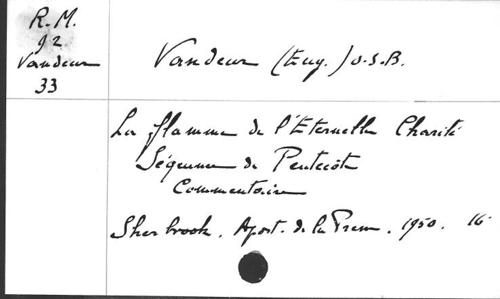 R.M.
92
Vandeur
33
Vandeur (Eug.) O.S.B.
La flamme de l'Eternelle Charité
Séquence de Pentecôte
Commentaire
Sherbrook. Apost. de la Presse. 1950. 16